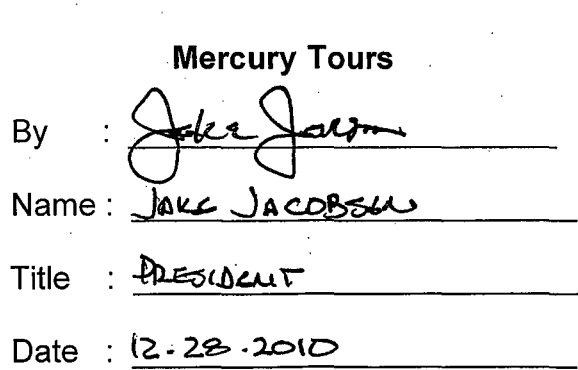 Mercury Tours
By : Jake
Name : JAKE JACOBSEN
Title : PRESIDENT
Date : 12-28-2010